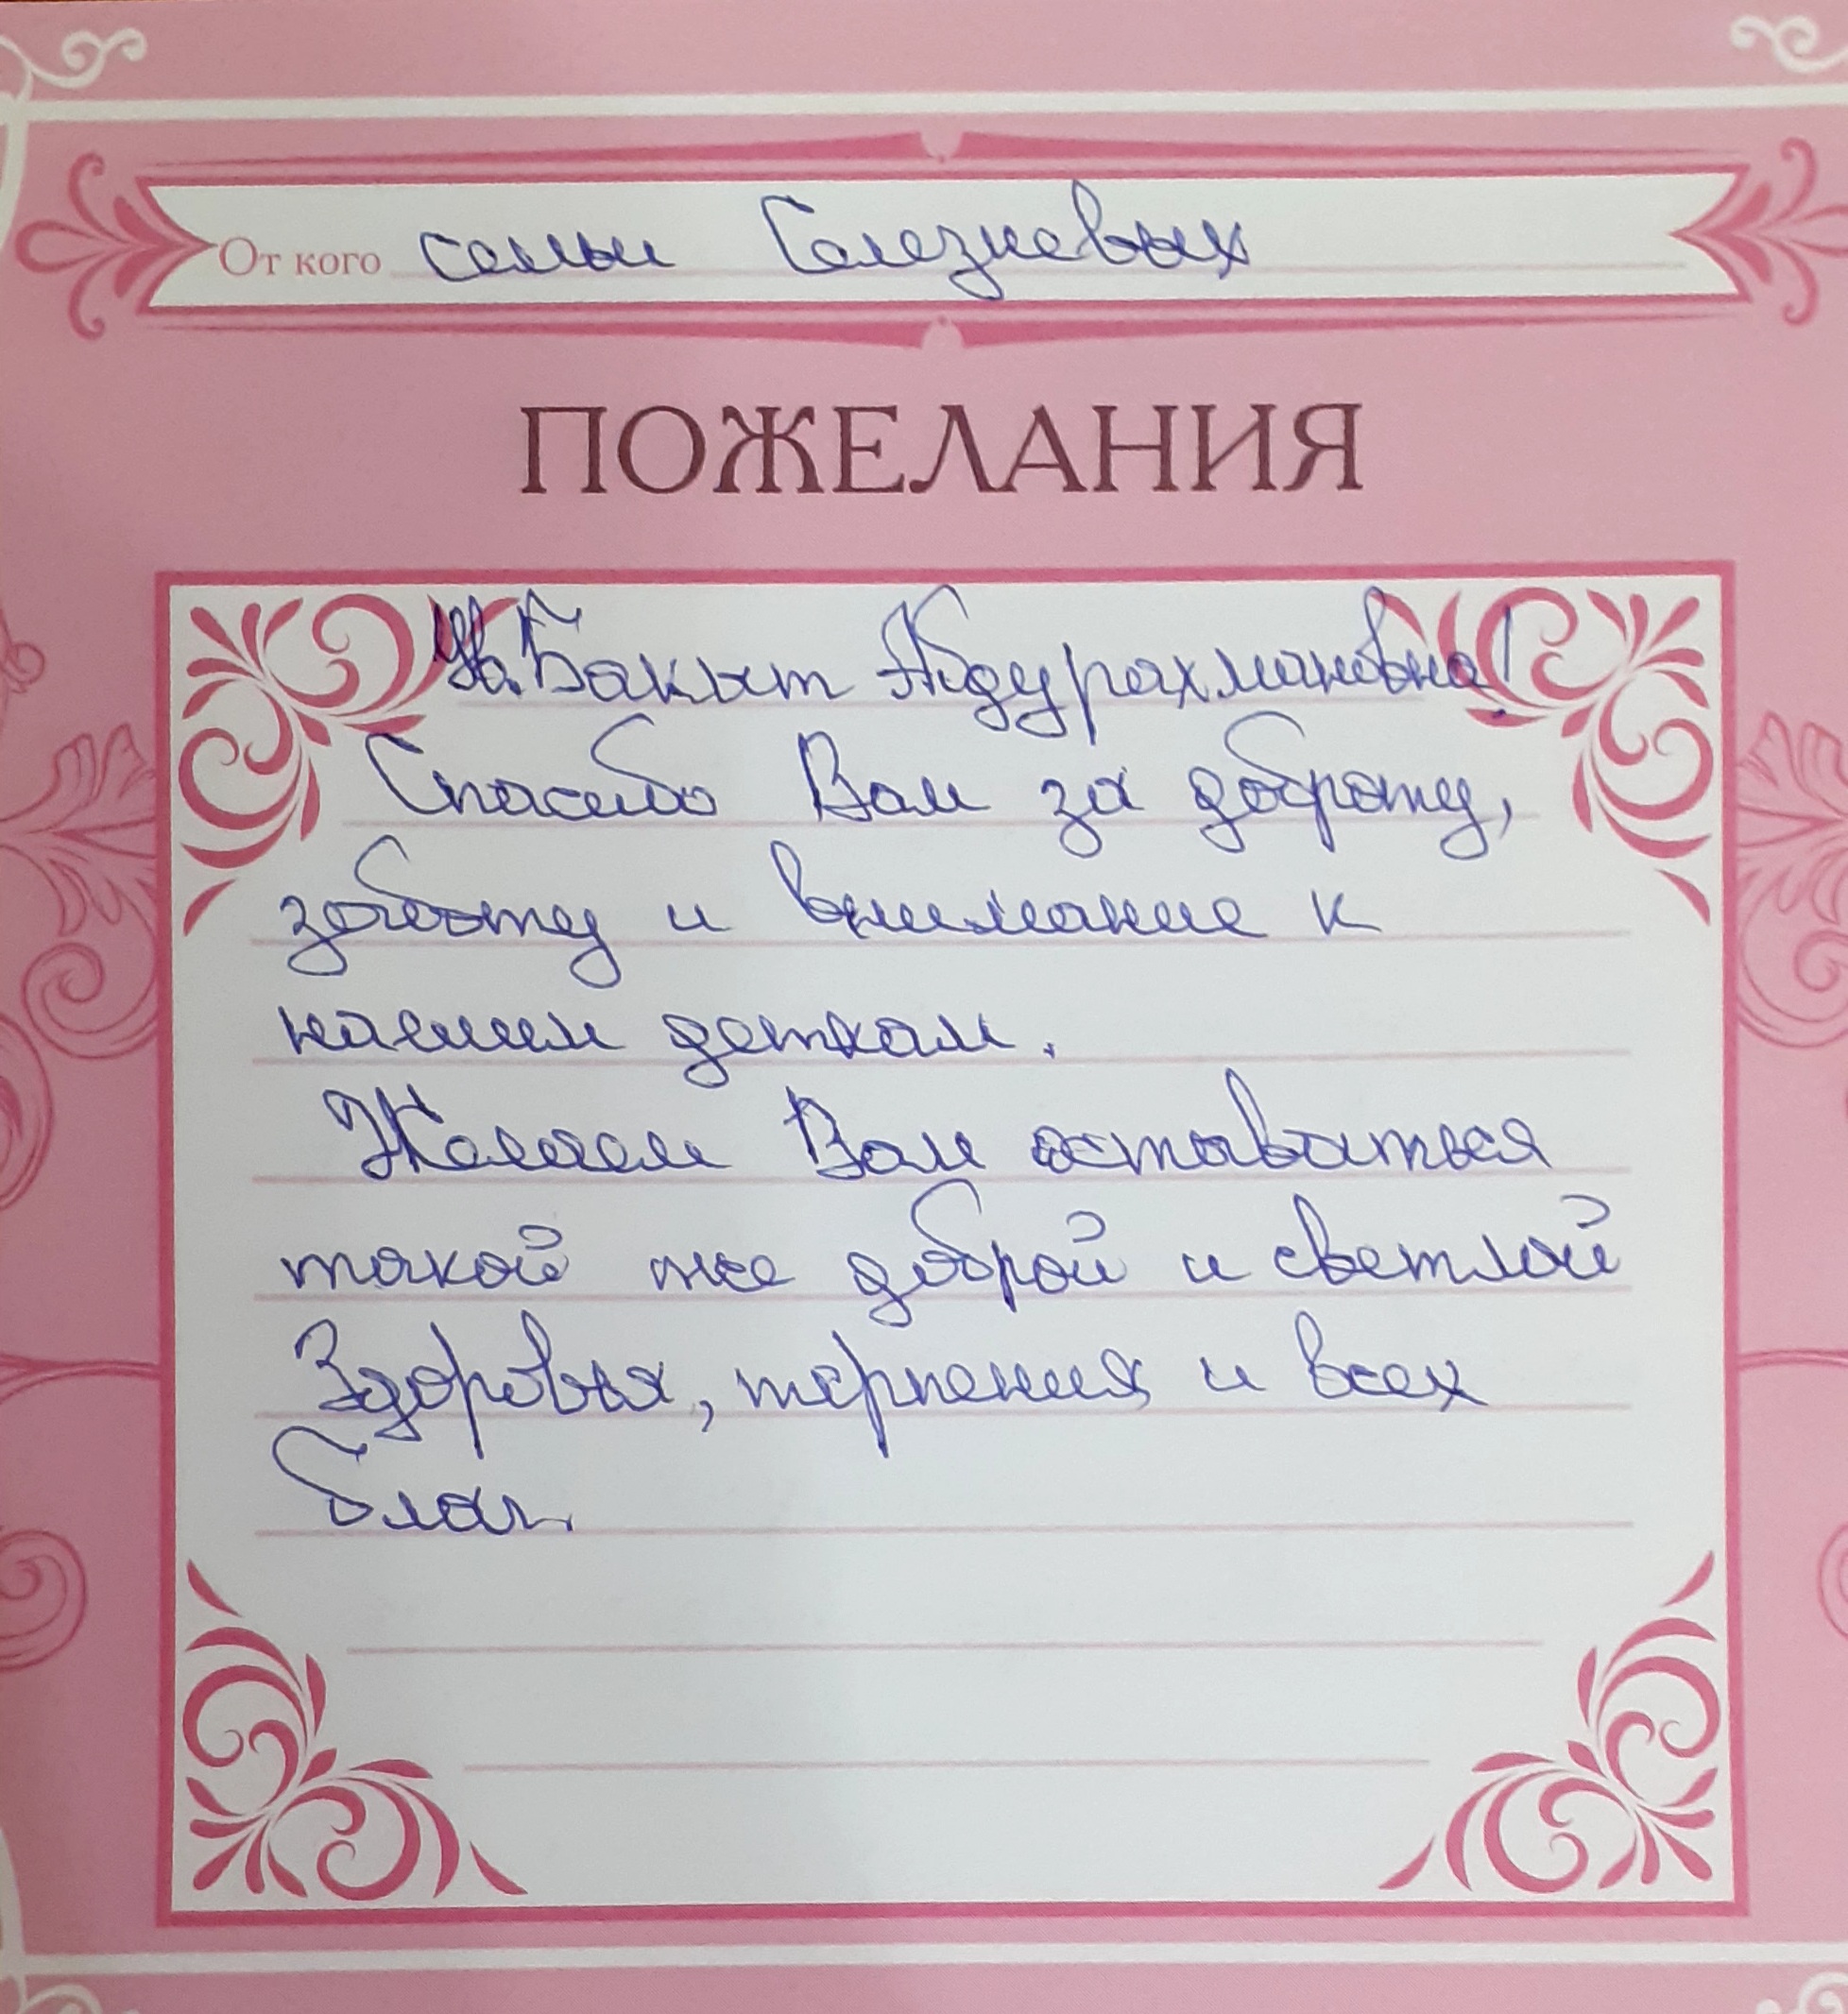 От кого семьи Селезневых
ПОЖЕЛАНИЯ
Ув. Бакыт Абдурахмановна!
Спасибо Вам за доброту,
заботу и внимание к
нашим деткам.
Желаем Вам оставаться
такой же доброй и светлой
Здоровья, терпения и всех
благ.